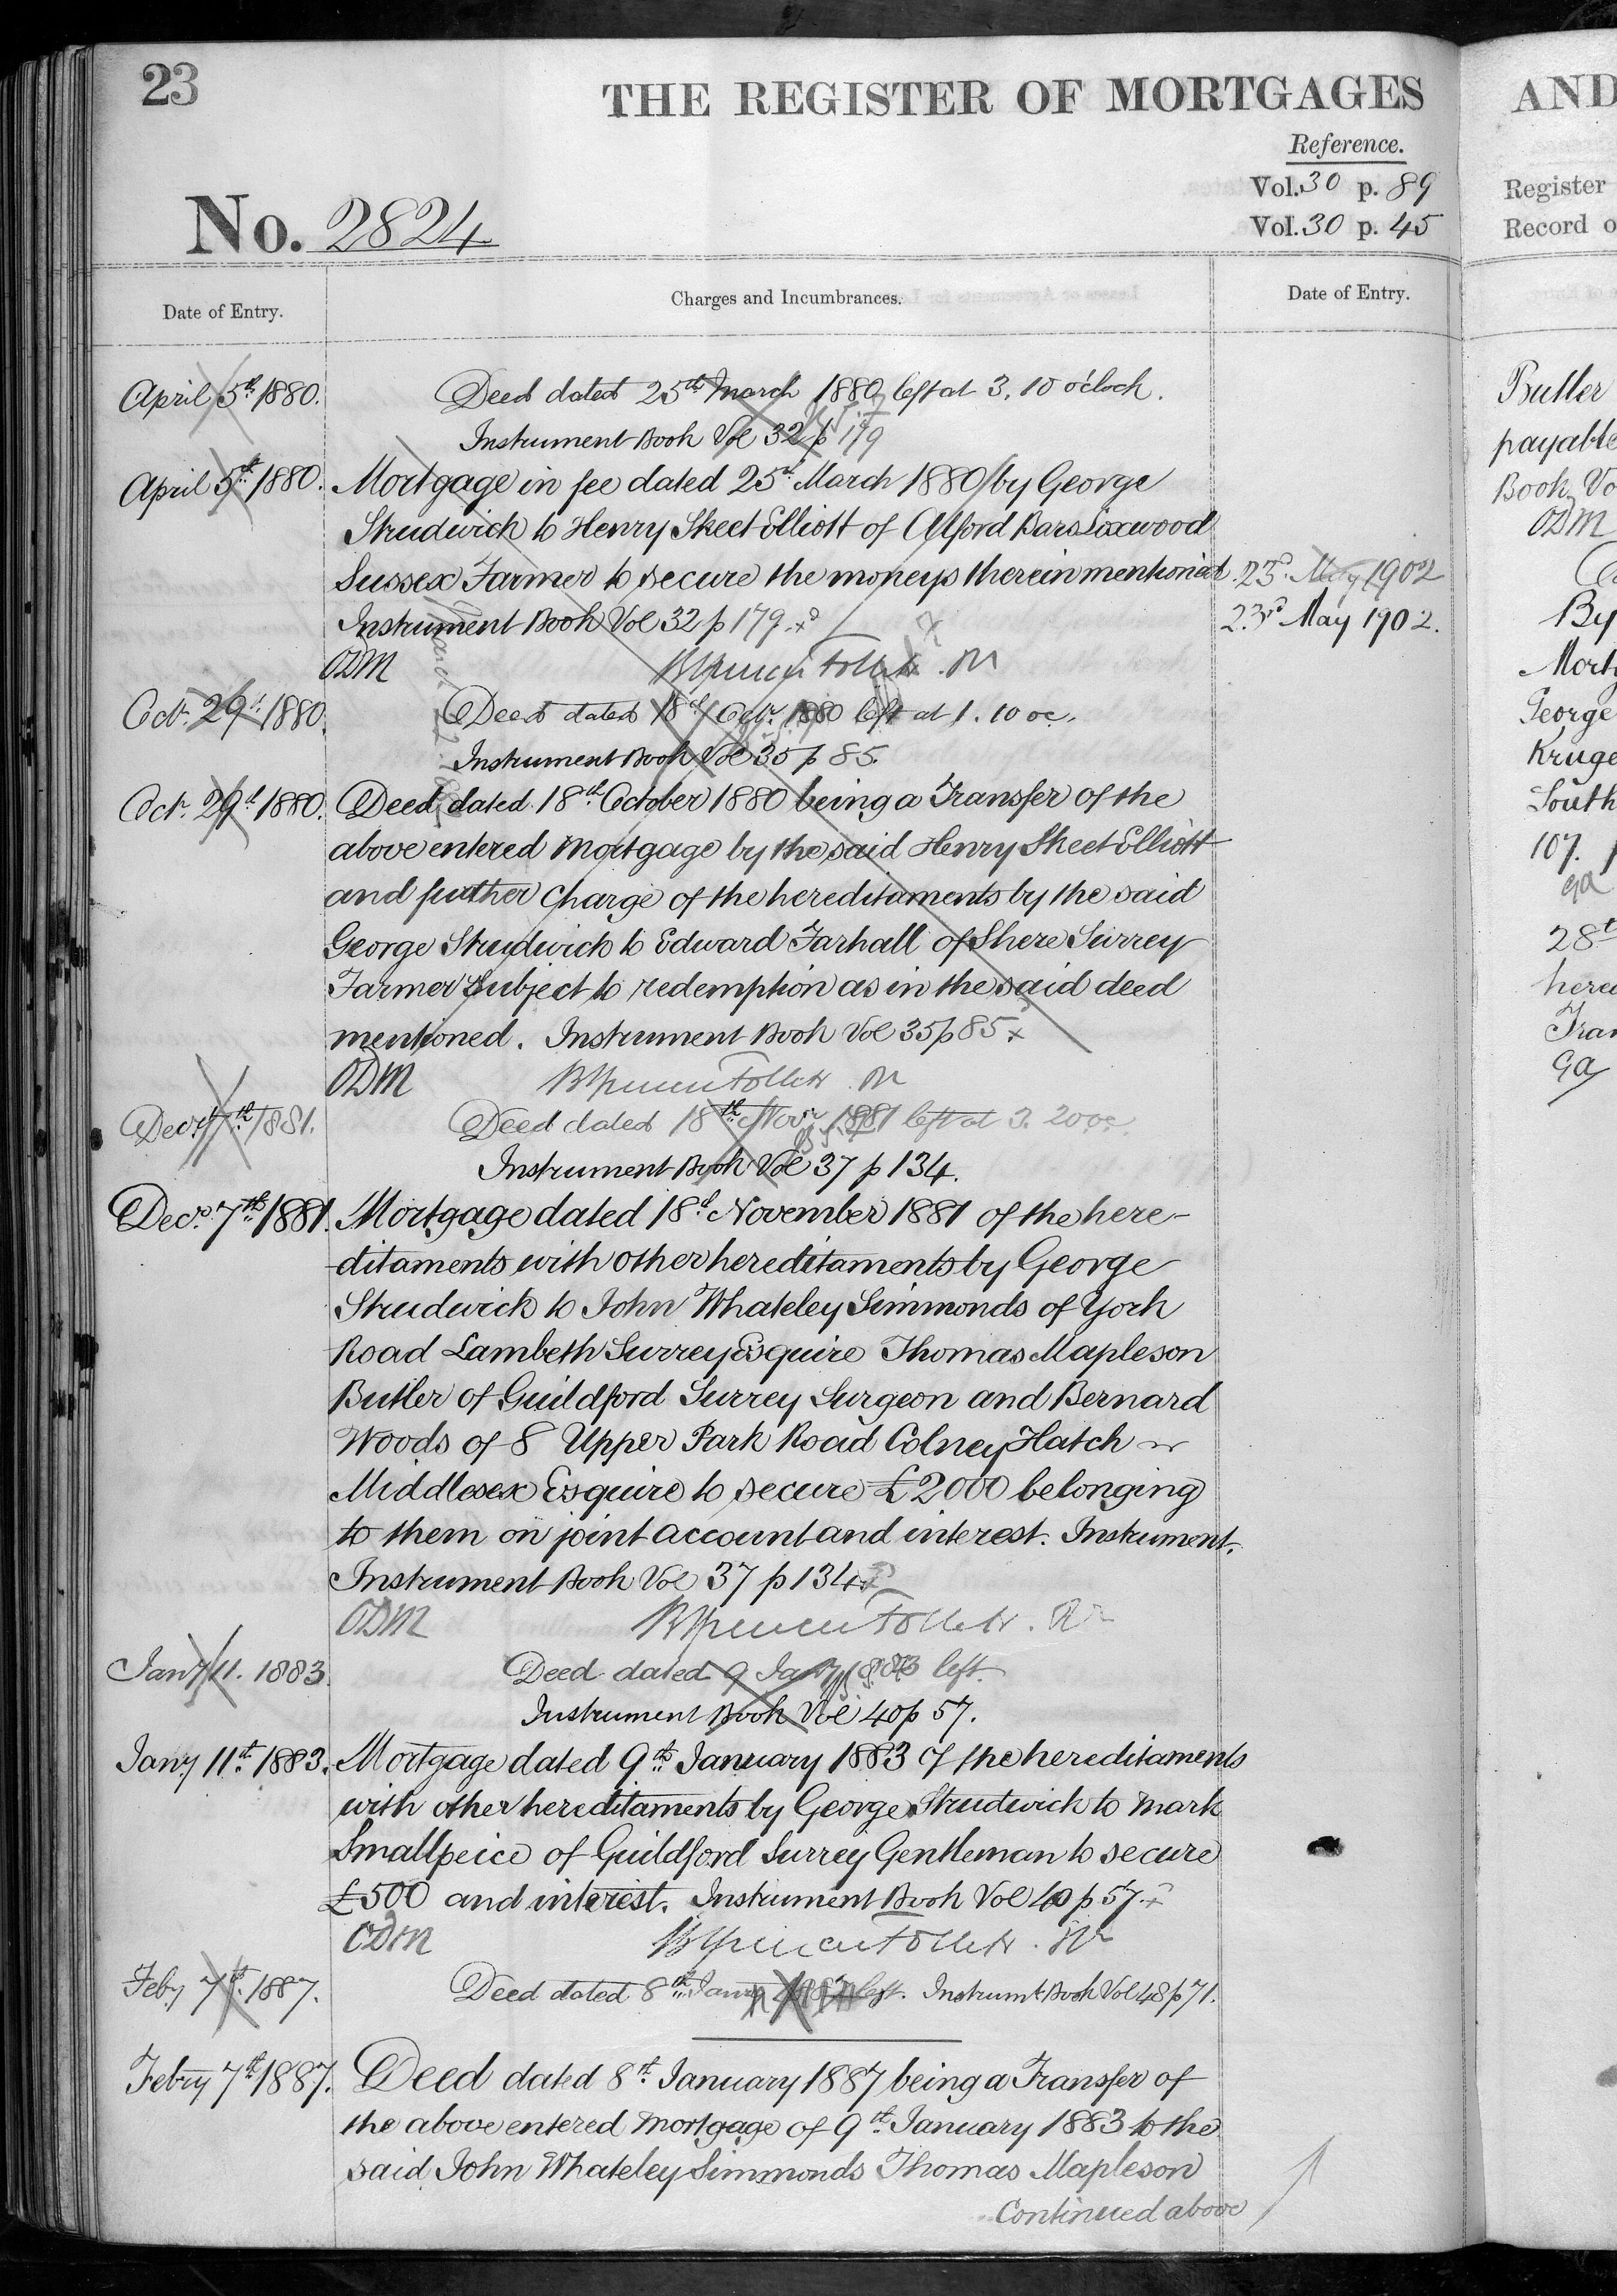 23
THE REGISTER OF MORTGAGES
Reference.
Vol. 30 p. 89
Vol. 30 p. 45
No. 2824
Date of Entry.
Charges and Incumbrances.
Date of Entry.
April 5th 1880.
Deed dated 25th March 1880 left at 3.10 o'clock.
Instrument Book Vol 32 p 179
April 5th 1880.
Mortgage in fee dated 25th March 1880 by George
Strudwick to Henry Skeet Elliott of Alford Bars Loxwood
Sussex Farmer to secure the moneys therein mentioned.
23d. May 1902
Instrument Book Vol 32 p 179.
23d May 1902.
ODM
Oct. 29th 1880.
Deed dated 18th Octr. 1880 left at 1.10 oc.
Instrument Book Vol 35 p 85.
Oct. 29th 1880.
Deed dated 18th October 1880 being a Transfer of the
above entered Mortgage by the said Henry Skeet Elliott
and further Charge of the hereditaments by the said
George Strudwick to Edward Farhall of Shere Surrey
Farmer subject to redemption as in the said deed
mentioned. Instrument Book Vol 35 p 85
ODM
Decr. 7th 1881.
Deed dated 18th Novr. 1881 left at 3.20 oc.
Instrument Book Vol 37 p 134.
Decr. 7th 1881.
Mortgage dated 18th November 1881 of the here-
ditaments with other hereditaments by George
Strudwick to John Whateley Simmonds of York
Road Lambeth Surrey Esquire Thomas Mapleson
Butler of Guildford Surrey Surgeon and Bernard
Woods of 8 Upper Park Road Colney Hatch
Middlesex Esquire to secure £2000 belonging
to them on joint account and interest. Instrument.
Instrument Book Vol 37 p 134
ODM
Jany 11. 1883.
Deed dated 9 Jany 1883 left
Instrument Book Vol 40 p 57.
Jany 11th 1883.
Mortgage dated 9th January 1883 of the hereditaments
with other hereditaments by George Strudwick to Mark
Smallpeice of Guildford Surrey Gentleman to secure
£500 and interest. Instrument Book Vol 40 p 57
ODM
Feby 7th 1887.
Deed dated 8th Jany 1887 left. Instrumt Book Vol 48 p 71.
Febry 7th 1887.
Deed dated 8th January 1887 being a Transfer of
the above entered Mortgage of 9th January 1883 to the
said John Whateley Simmonds Thomas Mapleson
Continued above
AND
Register
Record o
Butler
payable
Book Vo
ODM
By
Mort
George
Kruge
South
107.
ga
28t
here
Tran
ga